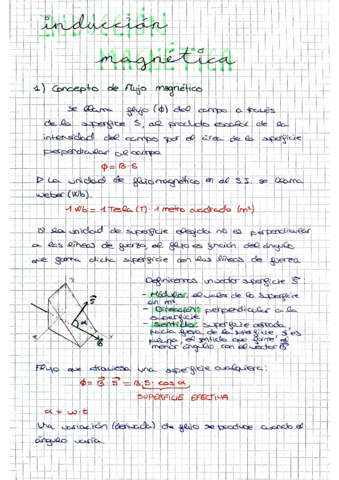 inducción
magnética
1) Concepto de flujo magnético
Se llama flujo (ϕ) del campo a través
de la superficie S, al producto escalar de la
intensidad del campo por el área de la superficie
perpendicular al campo
ϕ = B·S
▷ La unidad de flujo magnético en el S.I. se llama
weber (Wb).
1 Wb = 1 Tesla (T) · 1 metro cuadrado (m²)
Si la unidad de superficie elegida no es perpendicular
a las líneas de fuerza, el flujo es función del ángulo
que forma dicha superficie con las líneas de fuerza
Definiremos un vector superficie S⃗
- Módulo: el valor de la superficie
en m².
- Dirección: perpendicular a la
superficie
- Sentido: superficie cerrada,
hacia fuera de la superficie, si es
plana, el sentido que forme el
menor ángulo con el vector B⃗
S⃗
α
B⃗
Flujo que atraviesa una superficie cualquiera:
ϕ = B⃗ · S⃗ = B · S · cos α
SUPERFICIE EFECTIVA
α = ω · t
Una variación (derivada) de flujo se produce cuando el
ángulo varía.